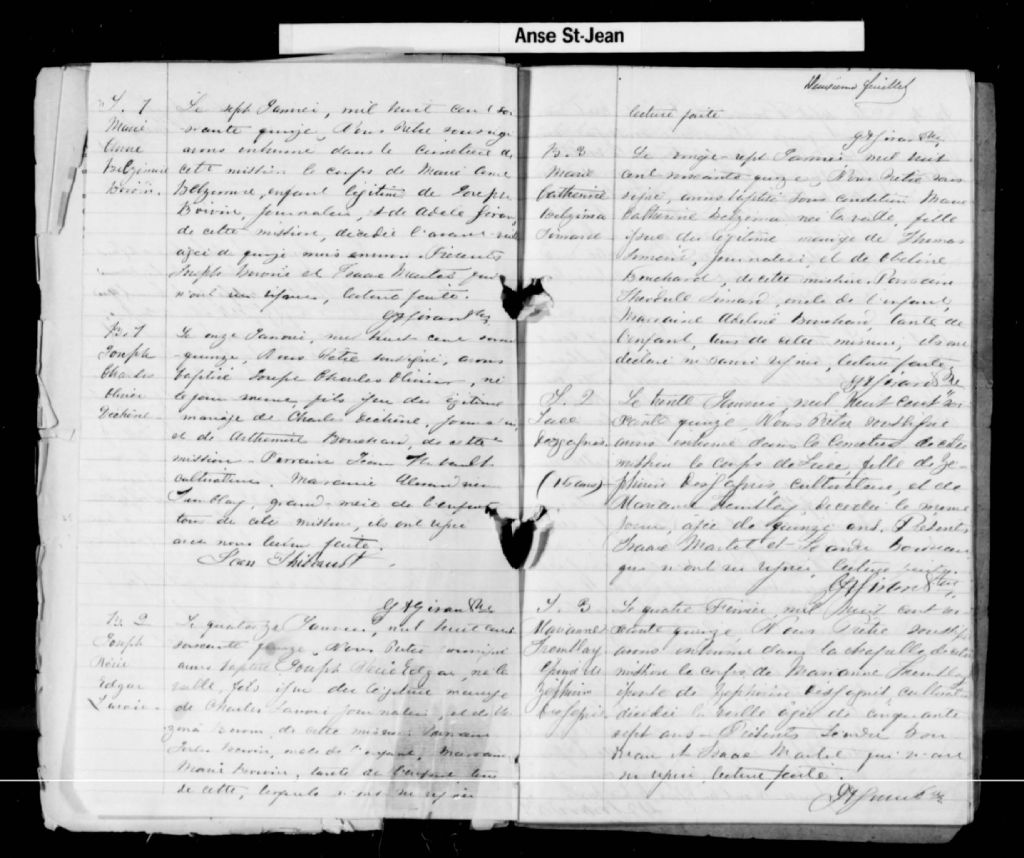 Anse St-Jean
S. 1
Marie
Anne
Belzimire
Boivin
Le sept Janvier, mil huit cent soi-
xante quinze, Nous Prêtre soussigné
avons inhumé dans le cimetière de
cette mission le corps de Marie Anne
Belzimire, enfant légitime de Joseph
Boivin, journalier, & de Adèle Girard
de cette mission, décédée l'avant veille
agée de quinze mois environ. Présents
Joseph Boivin et Isaac Martel qui
n'ont su signer, lecture faite.
G A Girard Ptre
B. 1
Joseph
Charles
Olivier
Dechêne
Le onze Janvier, mil huit cent soixante
quinze, Nous Prêtre soussigné, avons
baptisé Joseph Charles Olivier, né
le jour même, fils issu du légitime
mariage de Charles Dechêne, journalier,
et de Arthémise Bouchard, de cette
mission. Parrain Jean Thibault
cultivateur, Marraine Alexandrine
Tremblay, grand-mère de l'enfant
tous de cette mission, ils ont signé
avec nous lecture faite.
Jean Thibault
G A Girard Ptre
B. 2
Joseph
Edgar
Lavoie
Le quatorze Janvier, mil huit cent
soixante quinze, Nous Prêtre soussigné
avons baptisé Joseph Edgar, né la
veille, fils issu du légitime mariage
de Charles Lavoie journalier, et de
Boivin, de cette mission. Parrain
Boivin, oncle de l'enfant, Marraine
Marie Boivin, tante de l'enfant tous
de cette, lesquels n'ont su signer
Deuxième feuillet
lecture faite
G A Girard Ptre
B. 3
Marie
Catherine
Belzima
Simard
Le vingt-sept Janvier mil huit
cent soixante quinze, Nous Prêtre sous
signé, avons baptisé sous condition Marie
Catherine Belzima née la veille, fille
issue du légitime mariage de Thomas
Simard, journalier, et de Adeline
Bouchard, de cette mission. Parrain
Théodule Simard, oncle de l'enfant,
Marraine Adeline Bouchard, tante de
l'enfant, tous de cette mission, ils ont
déclaré ne savoir signer, lecture faite
G A Girard Ptre
S. 2
Luce
Desgagnés
(15 ans)
Le trente Janvier, mil huit cent soi-
xante quinze, Nous Prêtre soussigné
avons inhumé dans le cimetière de cette
mission le corps de Luce, fille de Zé-
phirin Desgagnés, cultivateur, et de
Marianne Tremblay, décédée le même
jour, agée de quinze ans. Présents
Isaac Martel et Léandre Boudreau
qui n'ont su signer, lecture faite.
G A Girard Ptre
S. 3
Marianne
Tremblay
Epouse de
Zéphirin
Desgagnés
Le quatre Février, mil huit cent soi-
xante quinze, Nous Prêtre soussigné
avons inhumé dans la chapelle de cette
mission le corps de Marianne Tremblay
épouse de Zéphirin Desgagnés cultivateur
décédée la veille agée de cinquante
sept ans. Présents Léandre Bou-
dreau et Isaac Martel qui n'ont
su signer, lecture faite.
G A Girard Ptre